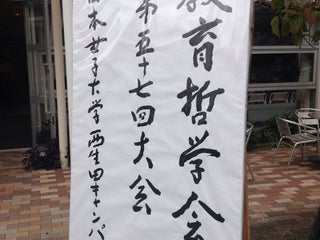 教育哲学会
第五十七回大会
日本女子大学西生田キャンパ